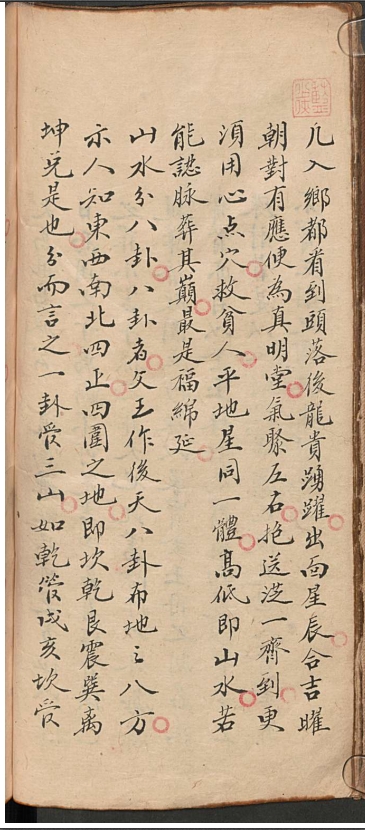 凢入鄉都看到頭落後龍貴踴躍出向星辰合吉曜
朝對有應便為真明堂氣聚左右抱送迯一齊到更
須用心点穴救貧人平地星同一體髙低即山水若
能認脉葬其巔最是福綿延
山水分八卦八卦者文王作後天八卦布地之八方
示人知東西南北四正四圍之地即坎乾艮震巽离
坤兌是也分而言之一卦管三山如乾管戌亥坎管